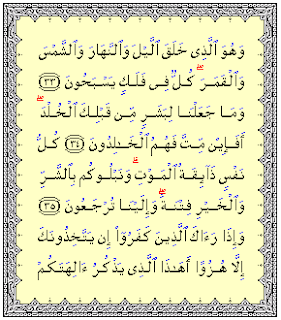 وَهُوَ ٱلَّذِى خَلَقَ ٱلَّيْلَ وَٱلنَّهَارَ وَٱلشَّمْسَ
وَٱلْقَمَرَ ۖ كُلٌّ فِى فَلَكٍ يَسْبَحُونَ ﴿٣٣﴾
وَمَا جَعَلْنَا لِبَشَرٍ مِّن قَبْلِكَ ٱلْخُلْدَ ۖ
أَفَإِي۟ن مِّتَّ فَهُمُ ٱلْخَـٰلِدُونَ ﴿٣٤﴾ كُلُّ
نَفْسٍ ذَآئِقَةُ ٱلْمَوْتِ ۗ وَنَبْلُوكُم بِٱلشَّرِّ
وَٱلْخَيْرِ فِتْنَةً ۖ وَإِلَيْنَا تُرْجَعُونَ ﴿٣٥﴾
وَإِذَا رَءَاكَ ٱلَّذِينَ كَفَرُوٓا۟ إِن يَتَّخِذُونَكَ
إِلَّا هُزُوًا أَهَـٰذَا ٱلَّذِى يَذْكُرُ ءَالِهَتَكُمْ